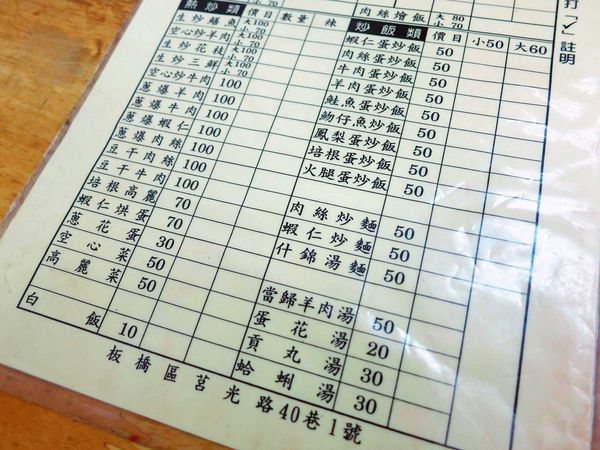 打「✓」註明
熱炒類 價目 數量 辣
生炒鱔魚 大100 小70
空心炒羊肉 大100 小70
生炒花枝 大100 小70
生炒三鮮 大100 小70
空心炒牛肉 大100 小70
蔥爆羊肉 100
蔥爆牛肉 100
蔥爆蝦仁 100
蔥爆肉絲 100
豆干肉絲 100
豆干牛肉 100
培根高麗 70
蝦仁烘蛋 70
蔥花蛋 30
空心菜 50
高麗菜 50
白飯 10
肉絲燴飯 大80 小70
炒飯類 價目 小50 大60
蝦仁蛋炒飯 50
肉絲蛋炒飯 50
牛肉蛋炒飯 50
羊肉蛋炒飯 50
鮭魚蛋炒飯 50
吻仔魚炒飯 50
鳳梨蛋炒飯 50
培根蛋炒飯 50
火腿蛋炒飯 50
肉絲炒麵 50
蝦仁炒麵 50
什錦湯麵 50
當歸羊肉湯 50
蛋花湯 20
貢丸湯 30
蛤蜊湯 30
板橋區莒光路40巷1號